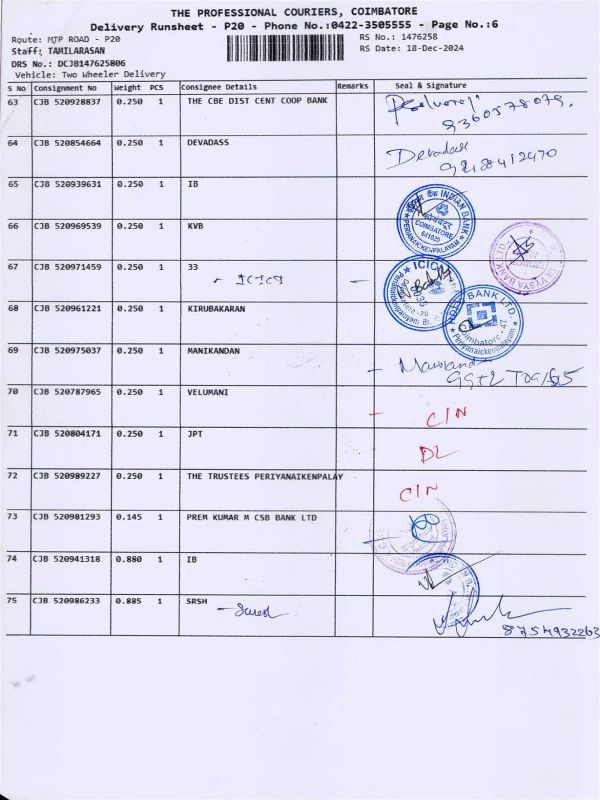 THE PROFESSIONAL COURIERS, COIMBATORE
Delivery Runsheet - P20 - Phone No.:0422-3505555 - Page No.:6
Route: MTP ROAD - P20
RS No.: 1476258
Staff: TAMILARASAN
RS Date: 18-Dec-2024
DRS No.: DCJB147625806
Vehicle: Two Wheeler Delivery
S No Consignment No Weight PCS Consignee Details Remarks Seal & Signature
63 CJB 520928837 0.250 1 THE CBE DIST CENT COOP BANK
64 CJB 520854664 0.250 1 DEVADASS Devadass
65 CJB 520939631 0.250 1 IB
INDIAN BANK
COIMBATORE
641020
PERIANAICKENPALAYAM
66 CJB 520969539 0.250 1 KVB
VYSYA BANK LTD
67 CJB 520971459 0.250 1 33 - ICICI -
ICICI
68 CJB 520961221 0.250 1 KIRUBAKARAN
BANK LTD.
Coimbatore - 47
Periyanaickenpalayam
69 CJB 520975037 0.250 1 MANIKANDAN
70 CJB 520787965 0.250 1 VELUMANI - C/N
71 CJB 520804171 0.250 1 JPT DL
72 CJB 520989227 0.250 1 THE TRUSTEES PERIYANAIKENPALAY C/N
73 CJB 520981293 0.145 1 PREM KUMAR M CSB BANK LTD
74 CJB 520941318 0.880 1 IB
75 CJB 520986233 0.885 1 SRSH - Suresh
8754932263